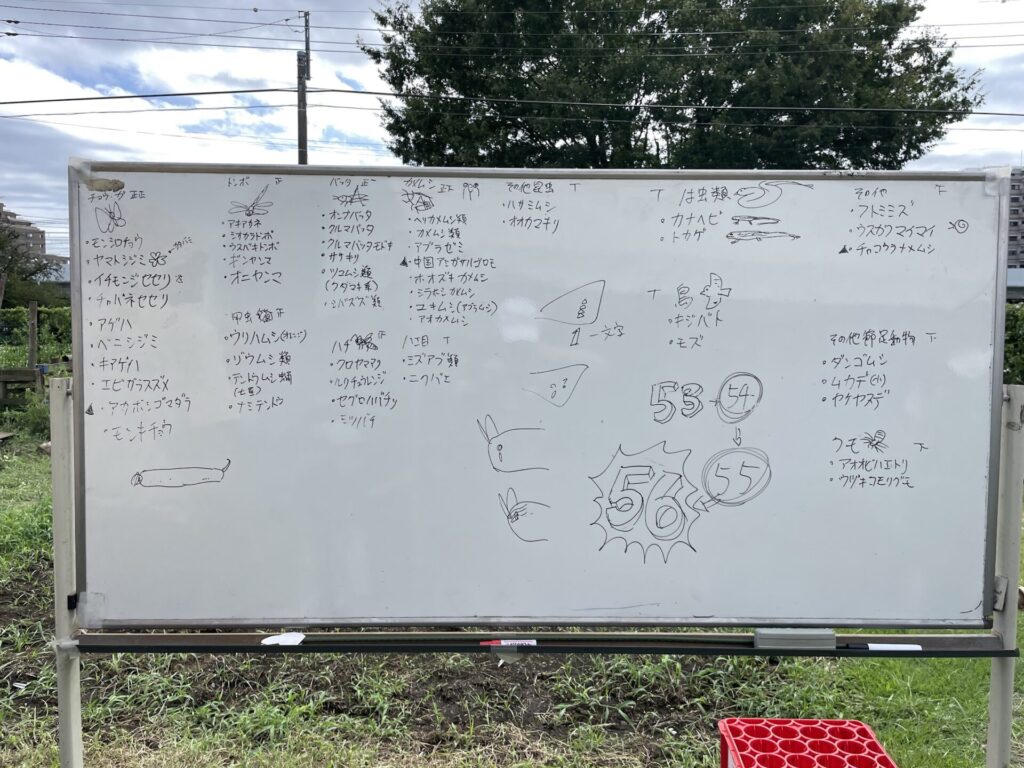 チョウ・ガ 正正
・モンシロチョウ
・ヤマトシジミ
・イチモンジセセリ
・チャバネセセリ
・アゲハ
・ベニシジミ
・キアゲハ
・エビガラスズメ
▲・アカボシゴマダラ
・モンキチョウ
トンボ 正
・アキアカネ
・シオカラトンボ
・ウスバキトンボ
・ギンヤンマ
・オニヤンマ
甲虫 正
・ウリハムシ
・ゾウムシ類
・テントウムシ類
・ナミテントウ
バッタ 正一
・オンブバッタ
・クルマバッタ
・クルマバッタモドキ
・ササキリ
・ツユムシ類
(クダマキ系)
・シバスズ類
ハチ 正
・クロヤマアリ
・ルリチュウレンジ
・セグロアシナガバチ
・ミツバチ
カメムシ 正正
・ヘリカメムシ類
・カメムシ類
・アブラゼミ
▲・中国アミガサハゴロモ
・ホオズキカメムシ
・シラホシカメムシ
・ユキムシ(アブラムシ)
・アオカメムシ
ハエ目 T
・ミズアブ類
・ニクバエ
その他昆虫 T
・ハサミムシ
・オオカマキリ
一文字
T は虫類
・カナヘビ
・トカゲ
T 鳥
・キジバト
・モズ
53 54
56 55
その他 下
・フトミミズ
・ウスカワマイマイ
▲・チャコウラナメクジ
その他節足動物 下
・ダンゴムシ
・ムカデ
・ヤケヤスデ
クモ 下
・アオオビハエトリ
・ウヅキコモリグモ